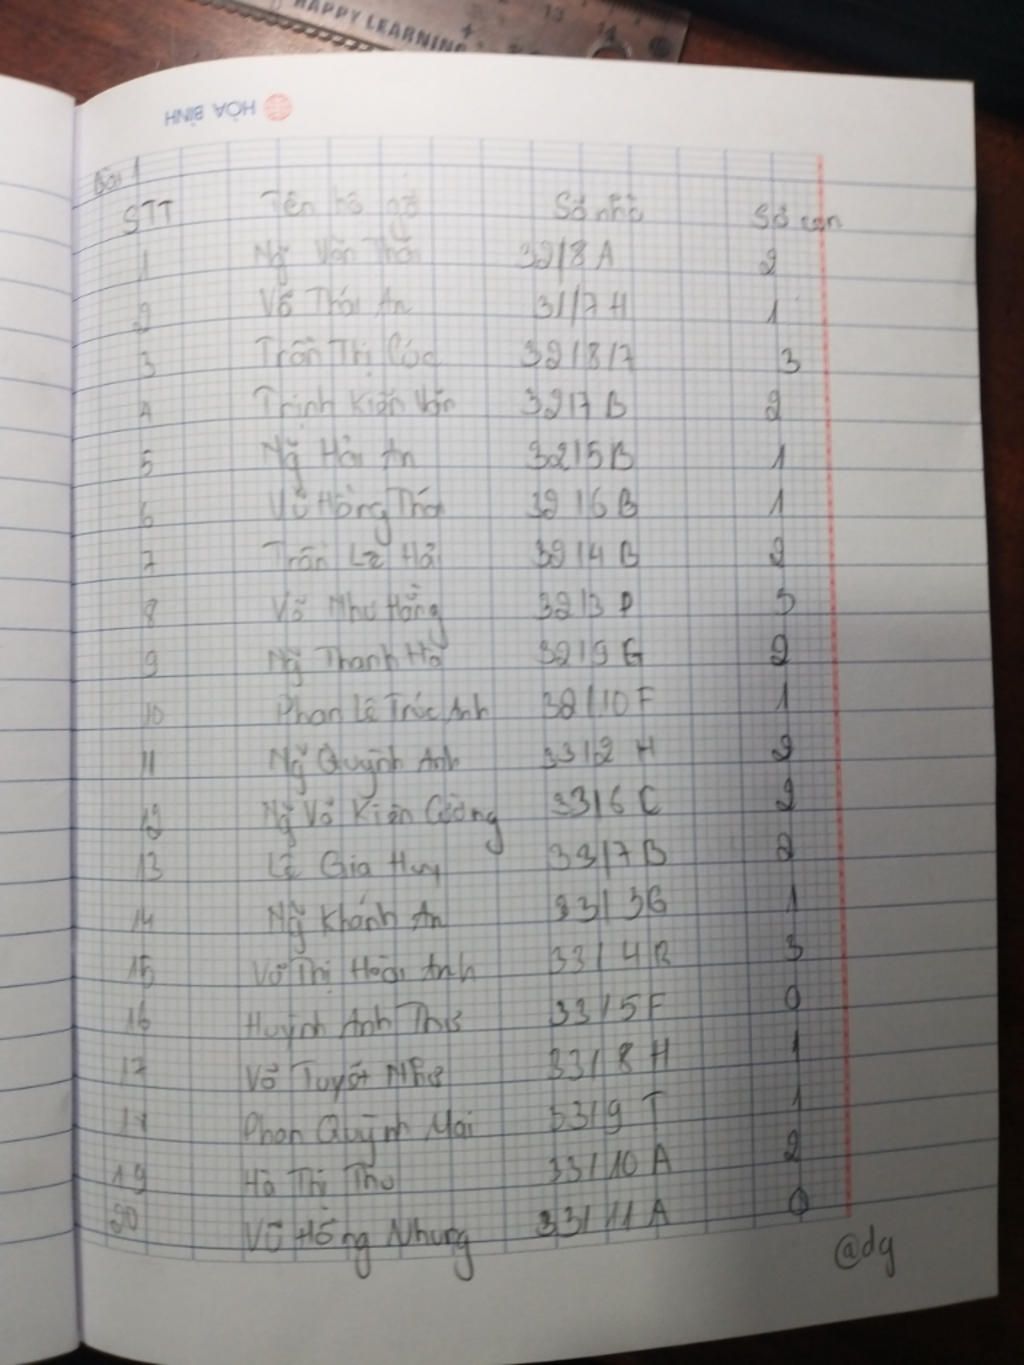 HAPPY LEARNING
HÒA BÌNH
Bài 1
STT Tên hộ gđ Số nhà Số con
1 Ng̃ Văn Thái 32/8A 2
2 Võ Thái An 31/7H 1
3 Trần Thị Cúc 32/8/7 3
4 Trịnh Kiến Văn 32/7B 2
5 Ng̃ Hải An 32/5B 1
6 Vũ Hồng Thái 32/6B 1
7 Trần Lê Hải 32/4B 2
8 Võ Như Hằng 32/3D 3
9 Ng̃ Thanh Hà 32/9G 2
10 Phan Lê Trúc Anh 32/10F 1
11 Ng̃ Quỳnh Anh 33/2H 2
12 Ng̃ Võ Kiên Cường 33/6C 2
13 Lê Gia Huy 33/7B 2
14 Ng̃ Khánh An 33/3G 1
15 Võ Thị Hoài Anh 33/4B 3
16 Huỳnh Anh Thư 33/5F 0
17 Võ Tuyết Như 33/8H 1
18 Phan Quỳnh Mai 33/9T 1
19 Hồ Thị Thu 33/10A 2
20 Võ Hồng Nhung 33/11A 0
@dg